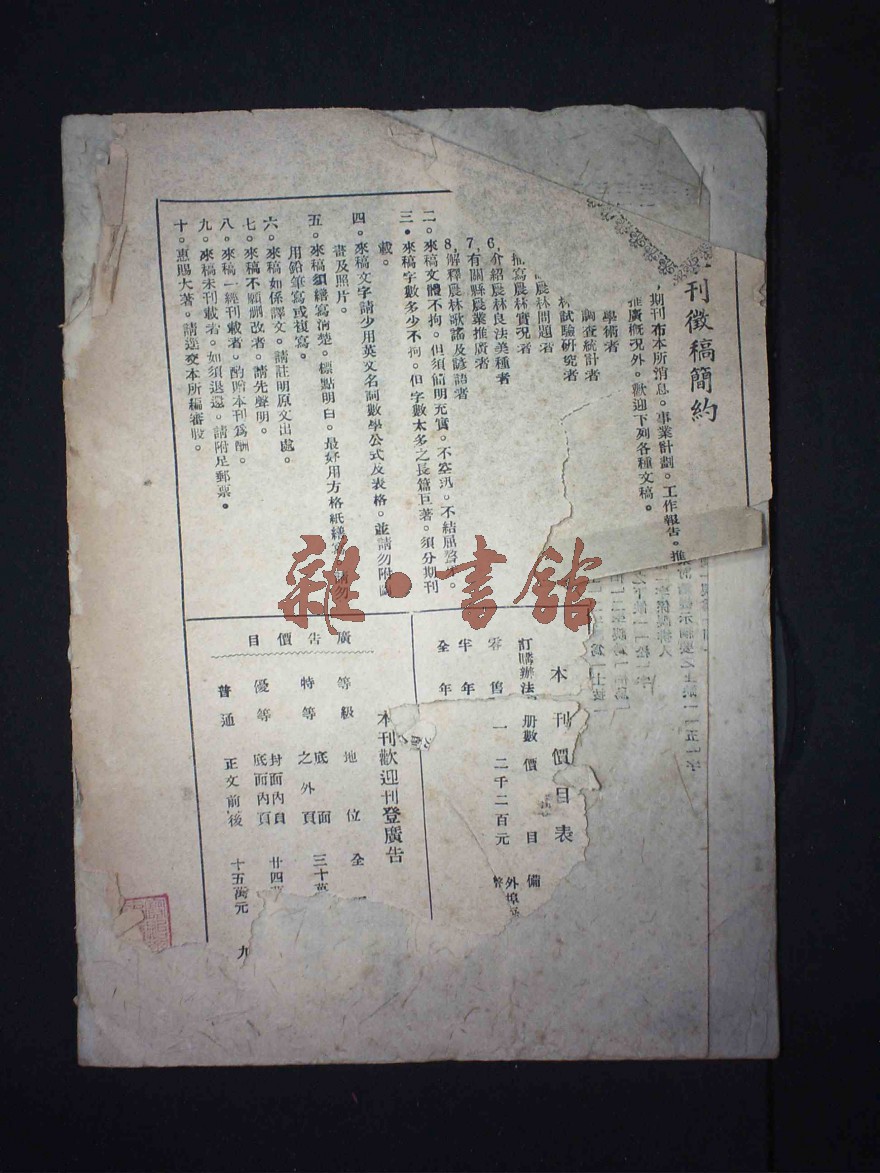 刊徵稿簡約
期刊布本所消息。事業計劃。工作報告。推
推廣概況外。歡迎下列各種文稿。
學術者
調查統計者
試驗研究者
農林問題者
描寫農林實況者
6,介紹農林良法美種者
7,有關縣農業推廣者
8,解釋農林歌謠及諺語者
二。來稿文體不拘。但須簡明充實。不空汎。不結屈聱牙。
三。來稿字數多少不拘。但字數太多之長篇巨著。須分期刊
載。
四。來稿文字請少用英文名詞數學公式及表格。並請勿附圖
畫及照片。
五。來稿須繕寫清楚。標點明白。最好用方格紙繕寫。請勿
用鉛筆寫或複寫。
六。來稿如係譯文。請註明原文出處。
七。來稿不願刪改者。請先聲明。
八。來稿一經刊載者。酌贈本刊為酬。
九。來稿未刊載者。如須退還。請附足郵票。
十。惠賜大著。請逕交本所編審股。
本刊價目表
訂購辦法 冊數 價目 備
零售 一 二千二百元 外埠
半年
全年
本刊歡迎刊登廣告
廣告價目
等級 地位 全
特等 底面之外頁 三十萬
優等 封面內頁 底面內頁 廿四萬
普通 正文前後 十五萬元 九
雜·書館